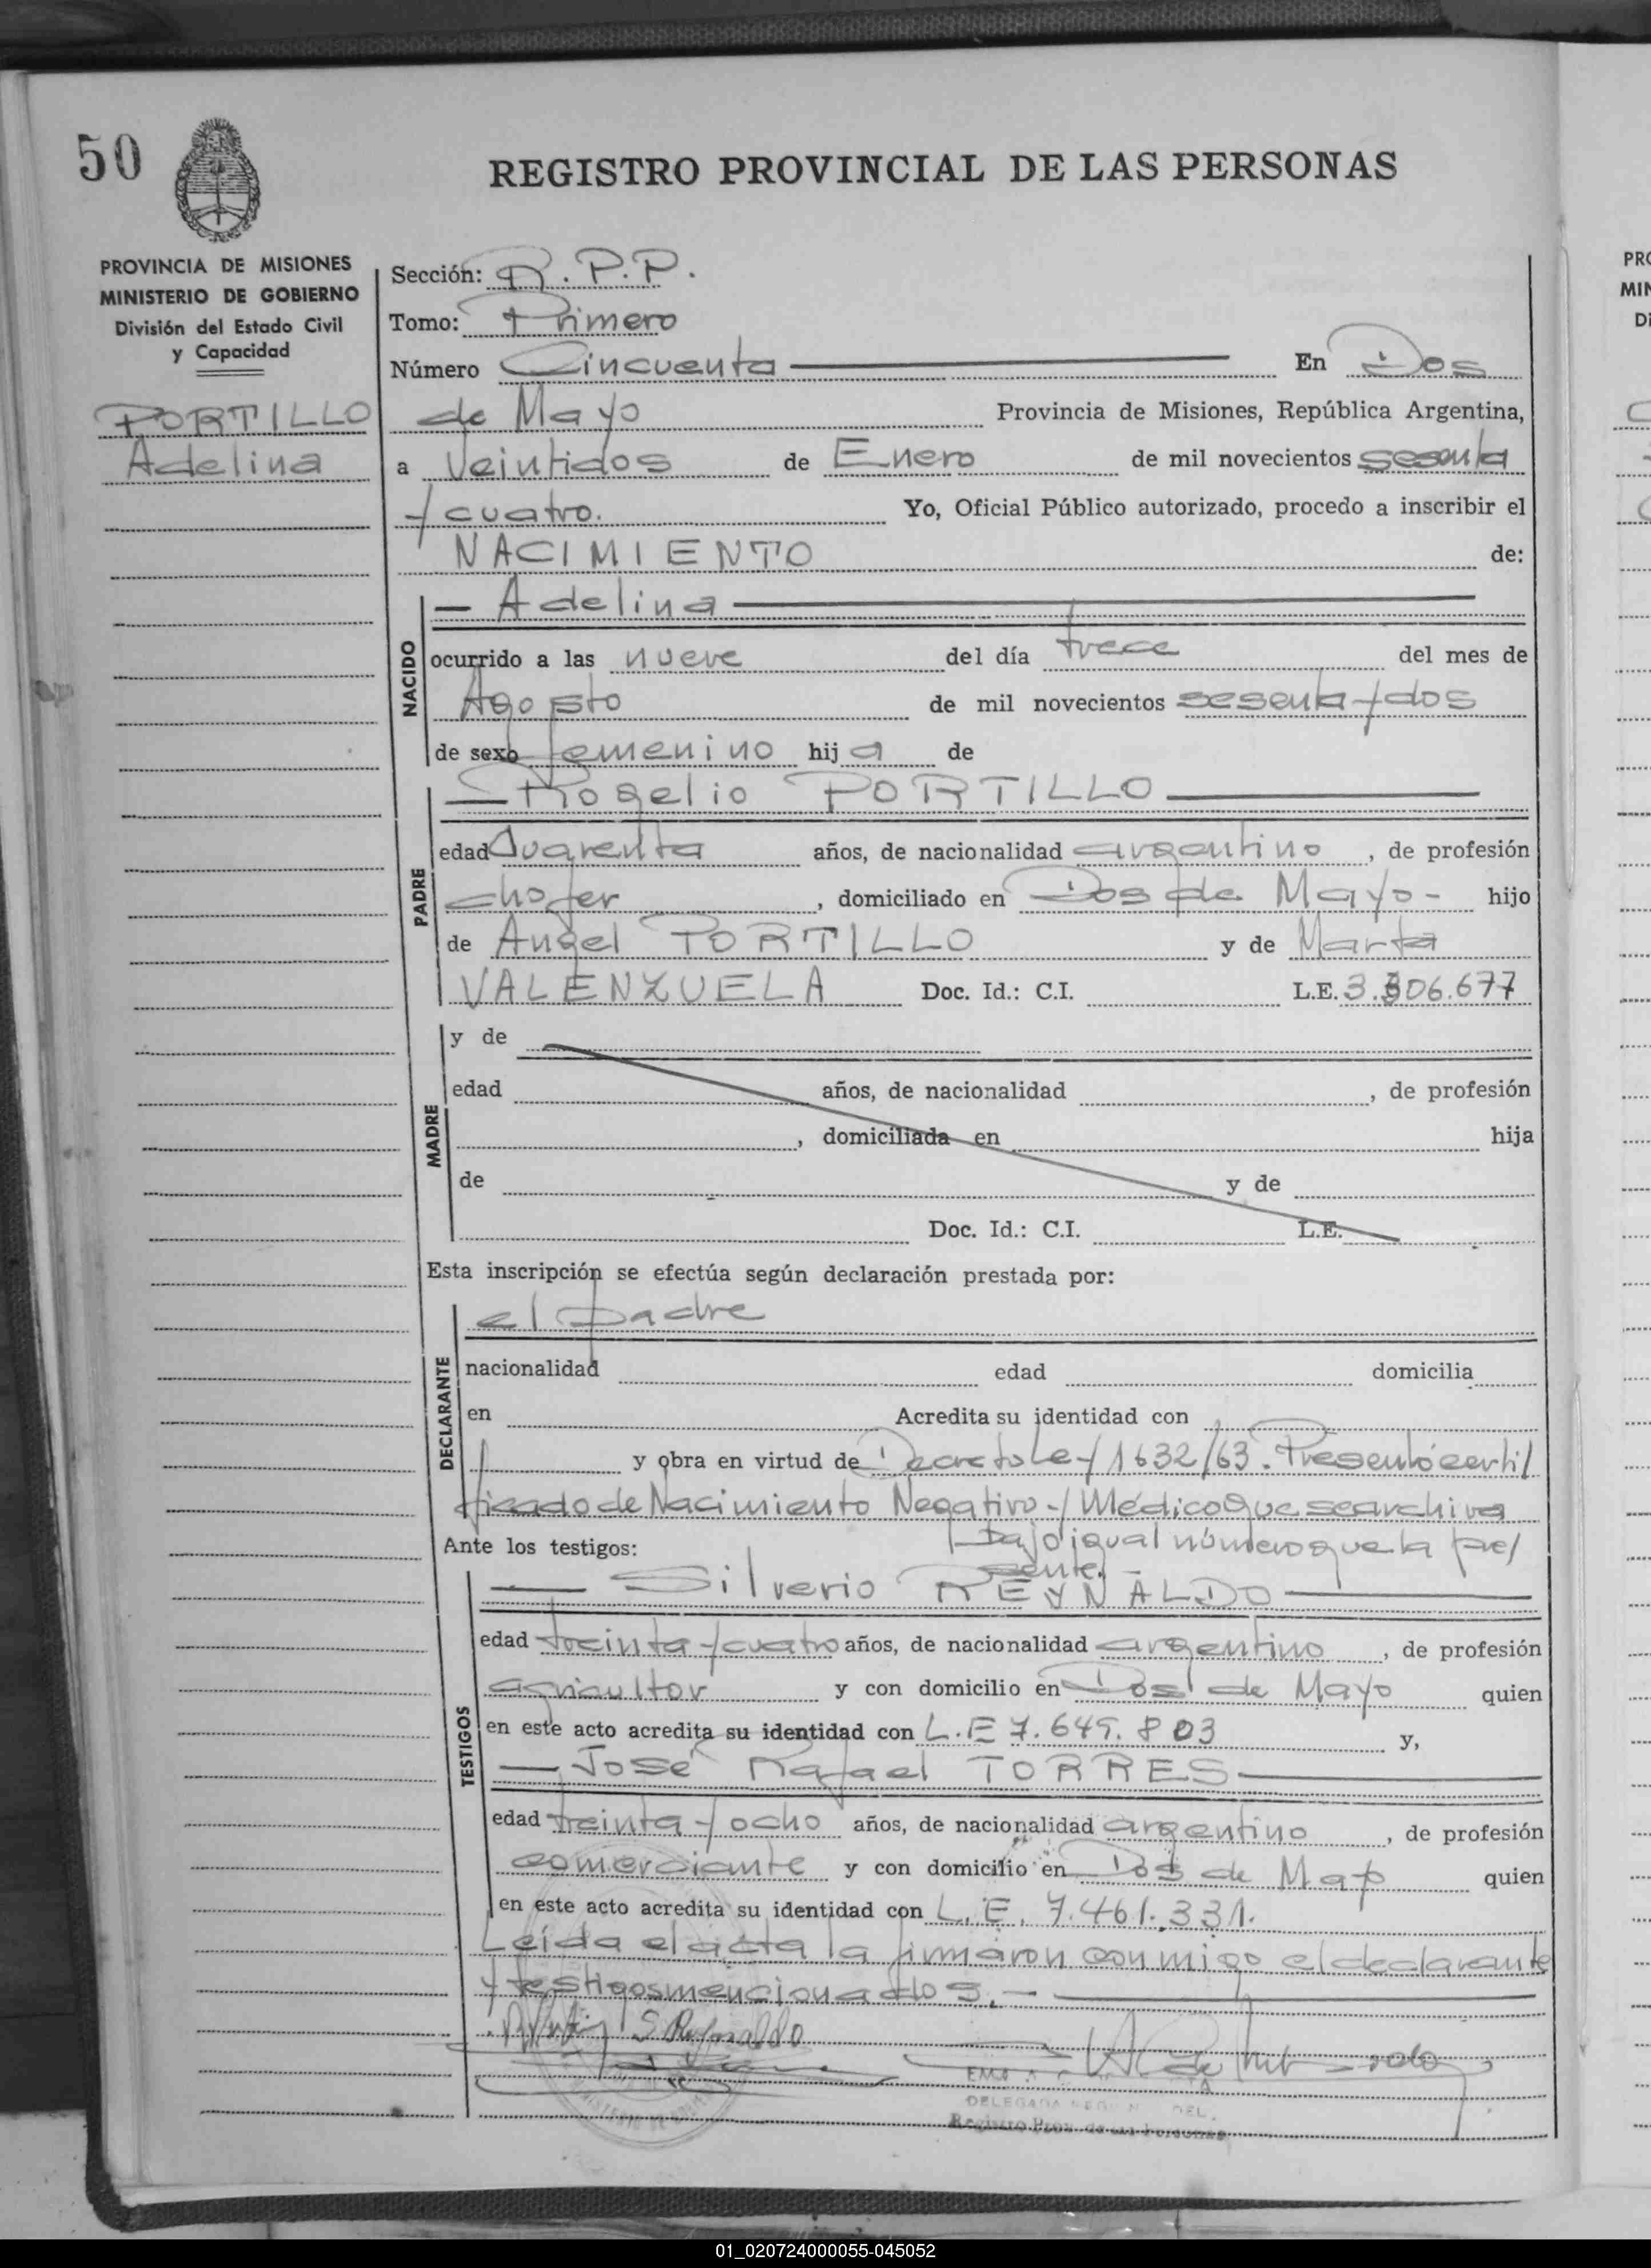 50
REGISTRO PROVINCIAL DE LAS PERSONAS
PROVINCIA DE MISIONES
MINISTERIO DE GOBIERNO
División del Estado Civil
y Capacidad
PORTILLO
Adelina
Sección: R.P.P.
Tomo: Primero
Número Cincuenta En Dos
de Mayo Provincia de Misiones, República Argentina,
a Veintidos de Enero de mil novecientos sesenta
y cuatro. Yo, Oficial Público autorizado, procedo a inscribir el
NACIMIENTO de:
NACIDO
— Adelina
ocurrido a las nueve del día trece del mes de
Agosto de mil novecientos sesenta y dos
de sexo femenino hija de
PADRE
— Rogelio PORTILLO —
edad Cuarenta años, de nacionalidad argentino, de profesión
chofer, domiciliado en Dos de Mayo- hijo
de Angel PORTILLO y de Marta
VALENZUELA Doc. Id.: C.I. L.E. 3.306.677
MADRE
y de
edad años, de nacionalidad , de profesión
, domiciliada en hija
de y de
Doc. Id.: C.I. L.E.
Esta inscripción se efectúa según declaración prestada por:
DECLARANTE
el padre
nacionalidad edad domicilia
en Acredita su identidad con
y obra en virtud de Decreto Ley 1632/63. Presentó certi/
ficado de Nacimiento Negativo y Médico que se archiva
bajo igual número que la pre/
sente.
Ante los testigos:
TESTIGOS
— Silverio REYNALDO —
edad treinta y cuatro años, de nacionalidad argentino, de profesión
agricultor y con domicilio en Dos de Mayo quien
en este acto acredita su identidad con L.E 7.649.803 y,
— José Rafael TORRES —
edad treinta y ocho años, de nacionalidad argentino, de profesión
comerciante y con domicilio en Dos de Mayo quien
en este acto acredita su identidad con L.E. 7.461.331.
Leída el acta la firmaron conmigo el declarante
y testigos mencionados. —
S. Reynaldo
DELEGADA
Registro Prov. de las Personas
PRO
MIN
Di
01_020724000055-045052